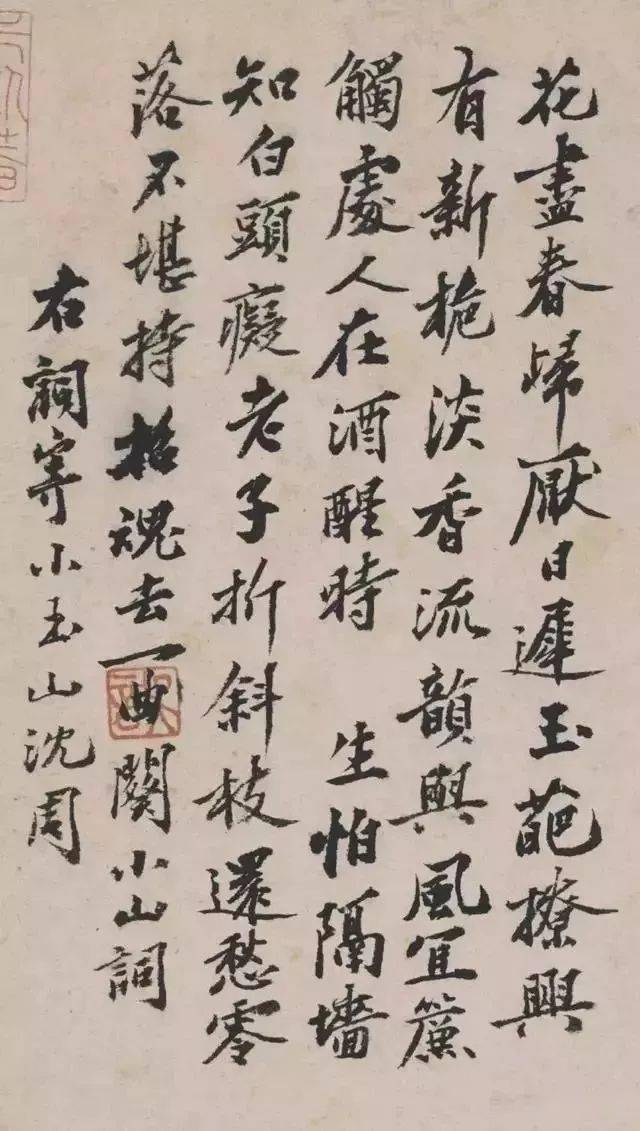 花盡春歸厭日遲玉葩撩興
有新梔淡香流韻與風宜簾
觸處人在酒醒時 生怕隔墻
知白頭癡老子折斜枝還愁零
落不堪持招魂去一曲小山詞
右詞寄小重山沈周